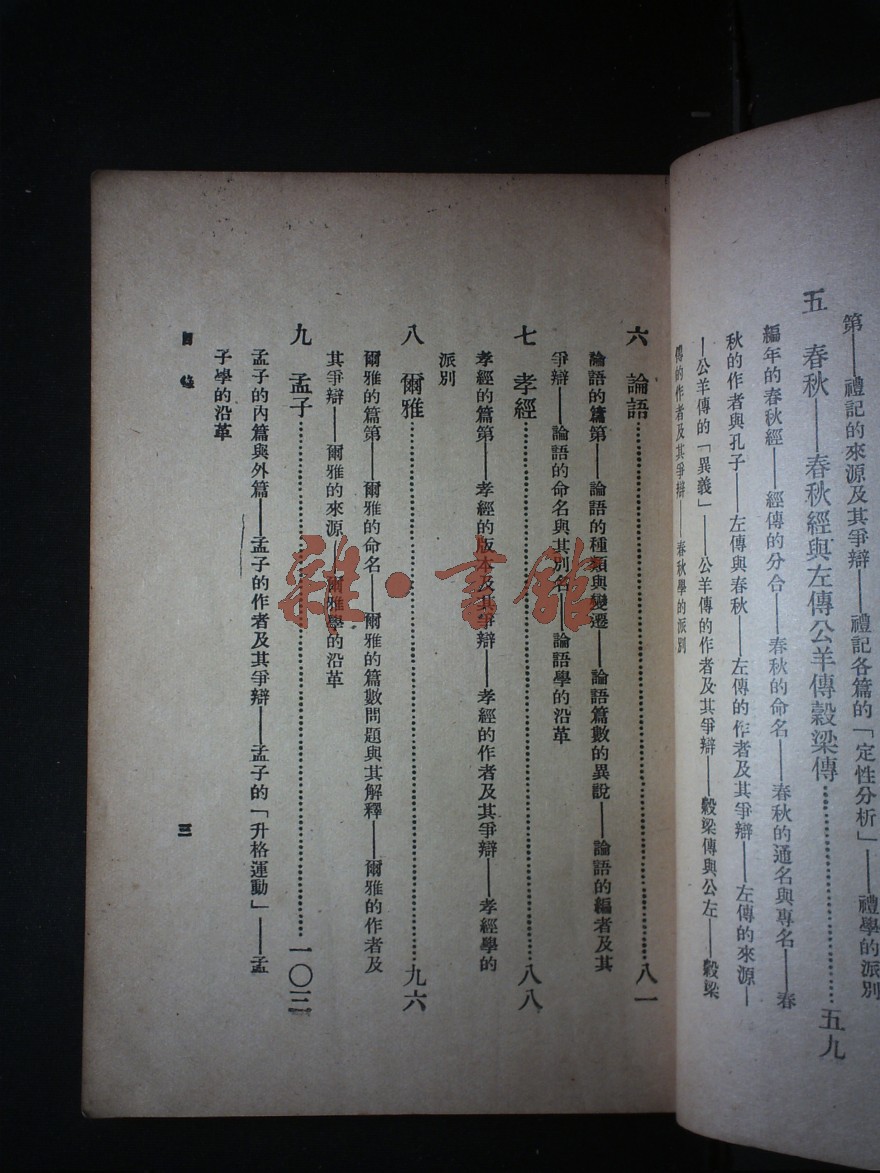 第——禮記的來源及其爭辯——禮記各篇的「定性分析」——禮學的派別
五　春秋——春秋經與左傳公羊傳穀梁傳……五九
編年的春秋經——經傳的分合——春秋的命名——春秋的通名與專名——春
秋的作者與孔子——左傳與春秋——左傳的作者及其爭辯——左傳的來源—
—公羊傳的「異義」——公羊傳的作者及其爭辯——穀梁傳與公左——穀梁
傳的作者及其爭辯——春秋學的派別
六　論語……八一
論語的篇第——論語的種類與變遷——論語篇數的異說——論語的編者及其
爭辯——論語的命名與其別名——論語學的沿革
七　孝經……八八
孝經的篇第——孝經的版本及其爭辯——孝經的作者及其爭辯——孝經學的
派別
八　爾雅……九六
爾雅的篇第——爾雅的命名——爾雅的篇數問題與其解釋——爾雅的作者及
其爭辯——爾雅的來源——爾雅學的沿革
九　孟子……一〇三
孟子的內篇與外篇——孟子的作者及其爭辯——孟子的「升格運動」——孟
子學的沿革
目錄
三
雜·書館